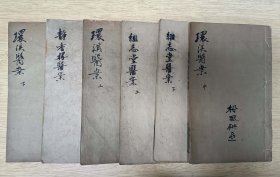 環溪醫案 中
繼志堂醫案 下
繼志堂醫案 上
環溪醫案 上
靜香樓醫案
環溪醫案 下